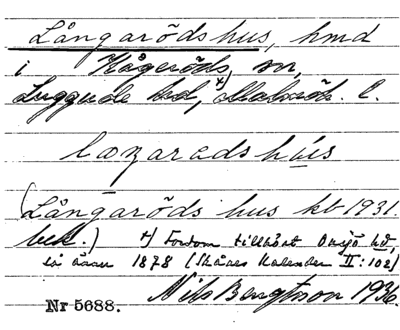 Långarödshus, hmd
i Kågeröds sn,
Luggude hd, Malmöh. l.
laŋaradshús
(Långaröds hus kb 1931.
bek.) +) Fordom tillhört Onsjö hd,
så ännu 1878 (Skånes Kalender II:102)
Nr 5688. Nils Bengtsson 1936.